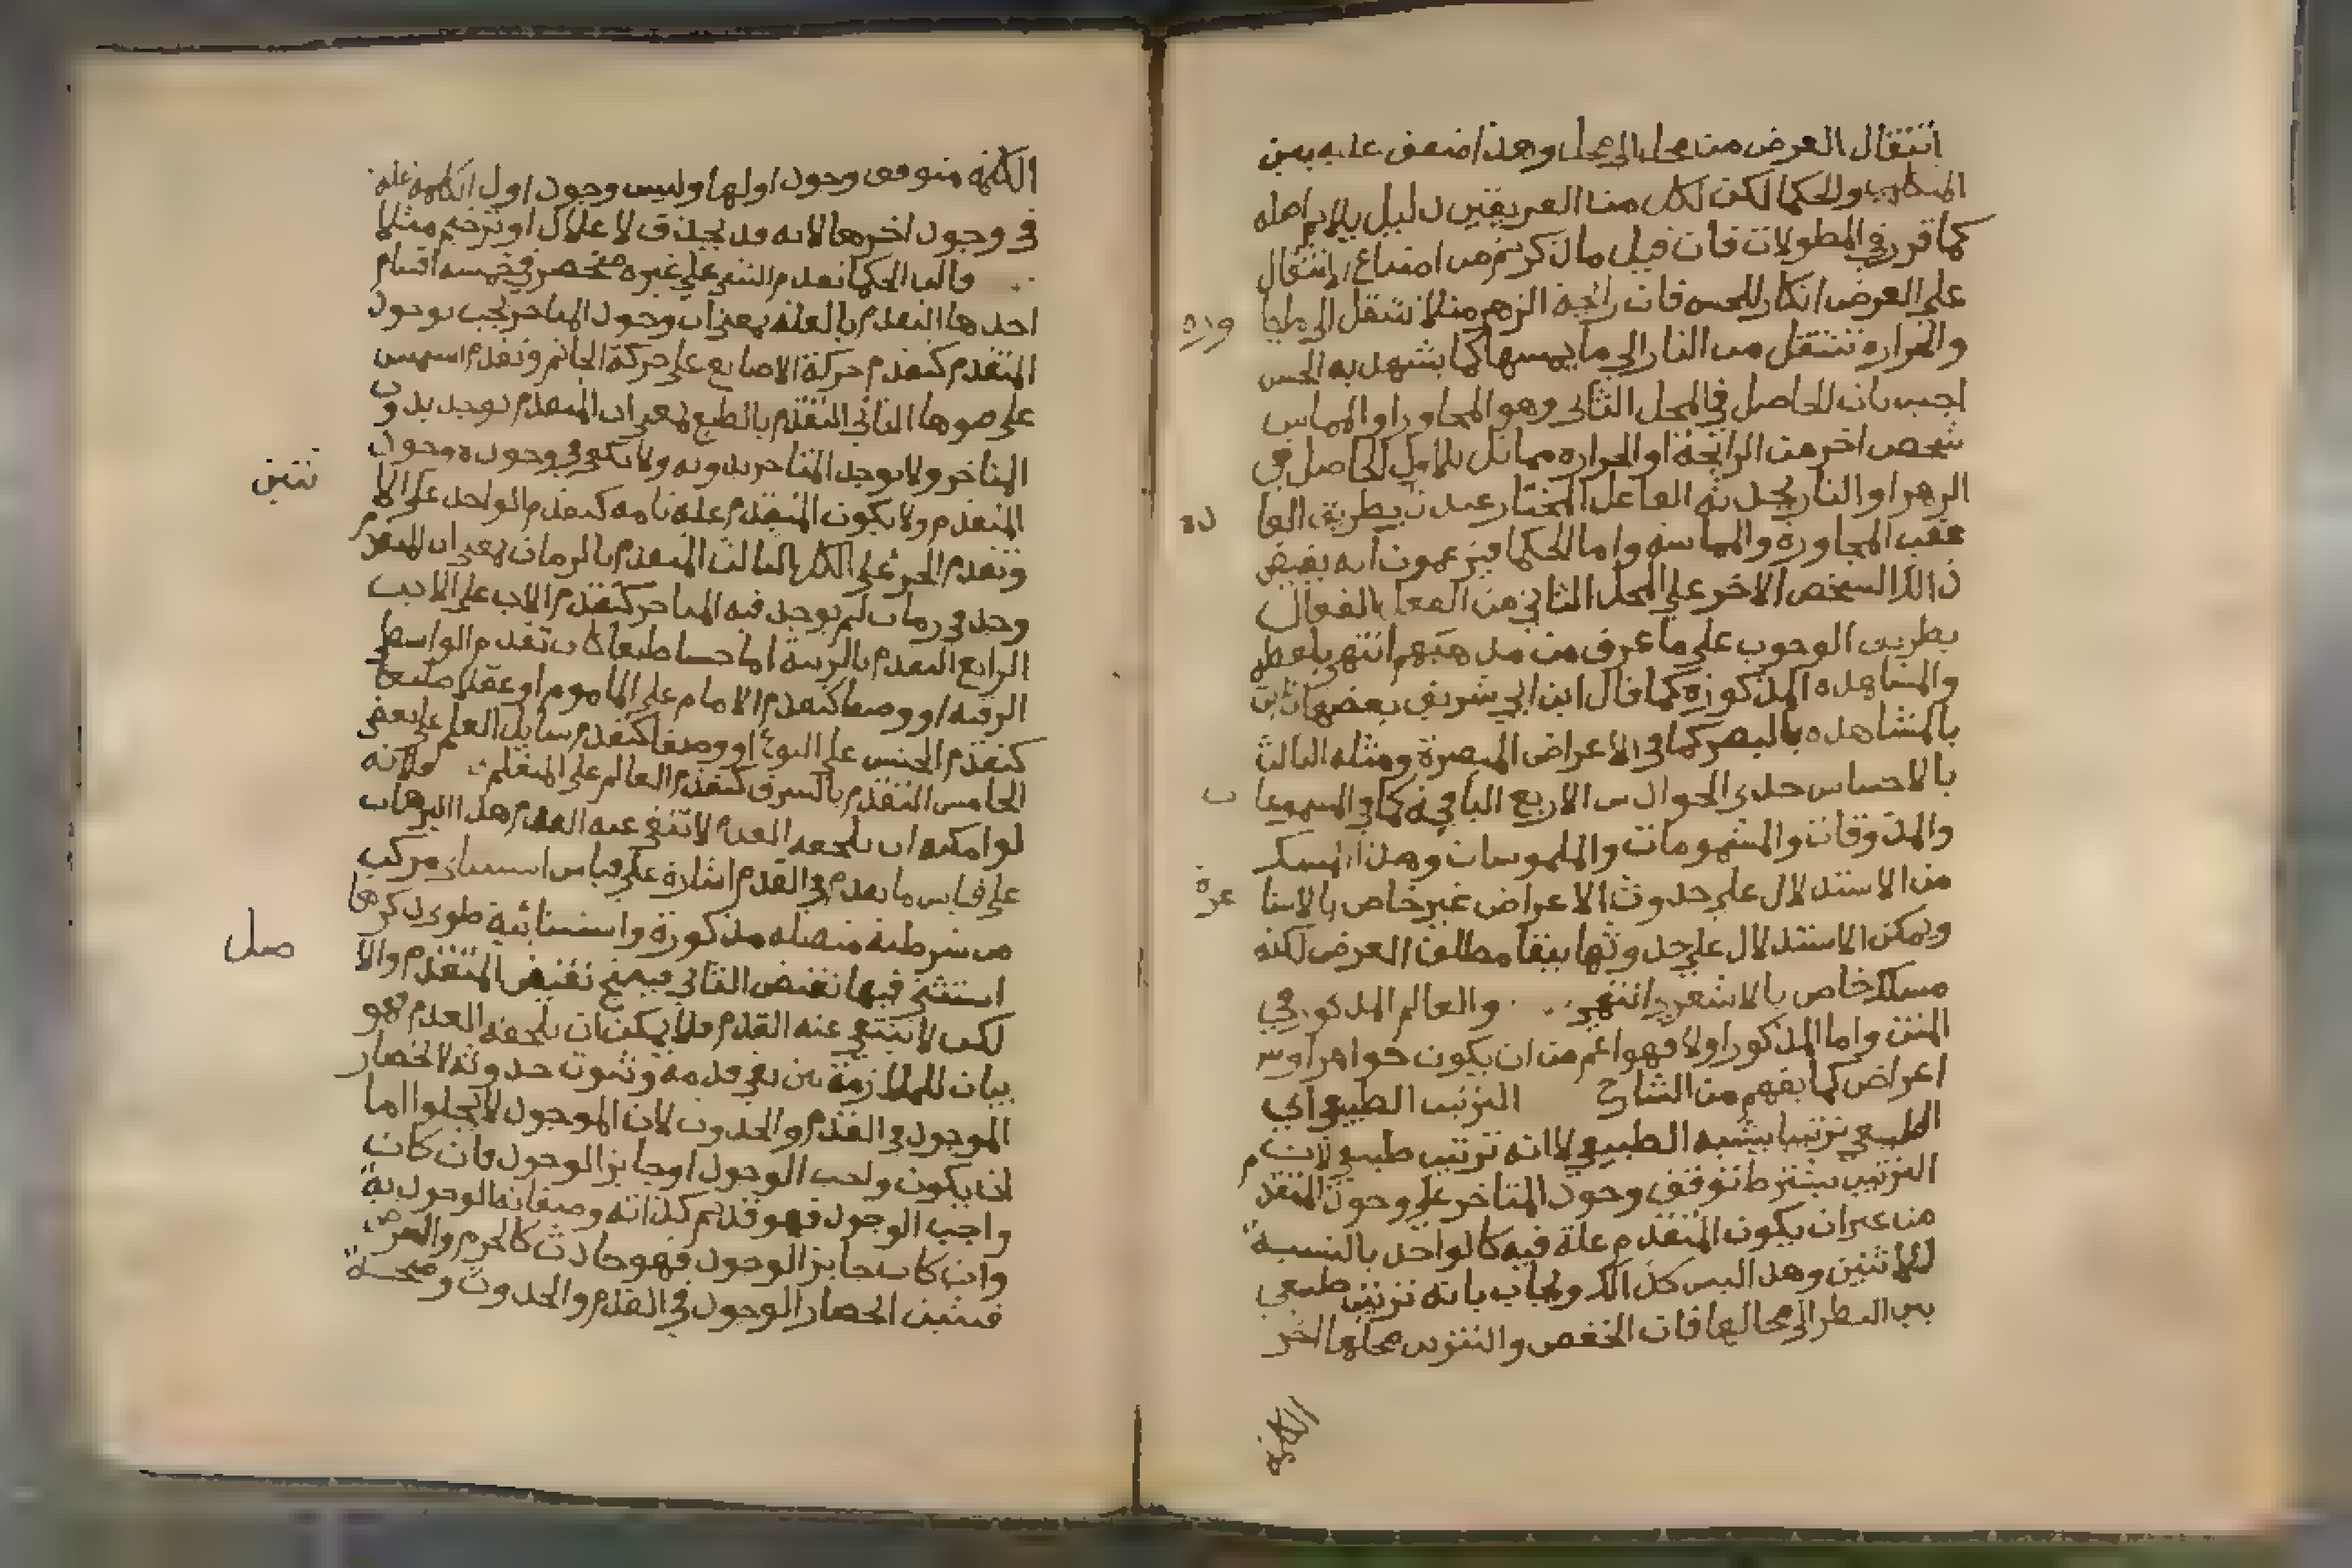 انتقال العرض من محل الى محل وهذا متفق عليه بين
المتكلمين والحكما لكن لكل من الفريقين دليل يلايم اصله
كما قرر في المطولات فان قيل ما ذكرتم من امتناع الانتقال
على العرض انكار للحس فان رائحة الزهر مثلا تنتقل الى ما يجا
وره
والحرارة تنتقل من النار الى ما يمسها كما يشهد به الحس
اجيب بان الحاصل في المحل الثاني وهو المجاور او المماس
شخص اخر من الرائحة او الحراره مماثل للاول الحاصل في
الزهر او النار يحدثه الفاعل المختار عندنا بطريق العا
ده
عقب المجاورة والمماسة واما الحكما فيزعمون انه يفيض
ذالك الشخص الاخر على المحل الثاني من العقل الفعال
بطريق الوجوب على ما عرف من مذهبهم انتهى
والمشاهده المذكورة كما قال ابن ابي شريف بعضها ثابت
بالمشاهده بالبصر كما في الاعراض المبصرة ومثله الثالث
بالاحساس حدى الحواس الاربع الباقية كما في المسموعا
ت
والمذوقات والمشمومات والملموسات وهذا المسلك
من الاستدلال على حدوث الاعراض غير خاص بالاشا
عرة
ويمكن الاستدلال على حدوثها ببقا مطلق العرض لكنه
مسلك خاص بالاشعري انتهى .. والعالم المذكور في
المتن واما المذكور اولا فهو اعم من ان يكون جواهر او
اعراض كما يفهم من الشارح الترتيب الطبيعي اي
الطبيعي ترتيبا يشبه الطبيعي لا انه ترتيب طبيعي لان
الترتيب يشترط توقف وجود المتاخر على وجود المتقدم
من غير ان يكون المتقدم علة فيه كالواحد بالنسبة
للاثنين وهذا ليس كذالك ويجاب بانه ترتيب طبيعي
بين النظر الى محالها فان الخفض والتنوين محلها اخر
الكلمة
الكلمة متوقف وجود اولها وليس وجود اول الكلمة علة
في وجود اخرها لانه قد يحذف لاعلال او ترخيم مثلا
قالت الحكما تقدم الشي على غيره منحصر في خمسه اقسام
احدها التقدم بالعلة بمعنى ان وجود المتاخر يجب بوجود
المتقدم كتقدم حركة الاصابع على حركة الخاتم وتقدم الشمس
على ضوها الثاني التقدم بالطبع بمعنى ان المتقدم يوجد بدون
المتاخر ولا يوجد المتاخر بدونه ولا يكفي في وجوده وجود
المتقدم ولا يكون المتقدم علة تامة كتقدم الواحد على الا
ثنين
وتقدم الجزء على الكل الثالث التقدم بالزمان بمعنى ان المتقدم
وجد في زمان لم يوجد فيه المتاخر كتقدم الاب على الابن
الرابع التقدم بالرتبة اما حسا طبعا كان تقدم الواسطه
الرقبه او وضعا كتقدم الامام على الماموم او عقلا طبعا
كتقدم الجنس على النوع او وضعا كتقدم مسايل العلم على بعض
الخامس التقدم بالشرف كتقدم العالم على المتعلم .. ولانه
لو امكنه ان يلحقه العدم لانتفى عنه القدم هذا البرهان
على قياس ما تقدم في القدم اشارة على قياس استثناى مركب
من شرطية متصله مذكورة واستثنائية طوى ذكرها
استثنى فيها نقيض التالي فينتج نقيض المتقدم والا
صل
لكن لا ينتفي عنه القدم فلا يمكن ان يلحقه العدم فهو
بيان للملازمة بين نفي قدمه وثبوت حدوثه لانحصار
الموجود في القدم والحدوث لان الموجود لا يخلوا اما
ان يكون واجب الوجود او جايز الوجود فان كان
واجب الوجود فهو قديم كذاته وصفاته الوجودية
وان كان جايز الوجود فهو حادث كالجرم والعرض
فتبين انحصار الوجود في القدم والحدوث وصحة